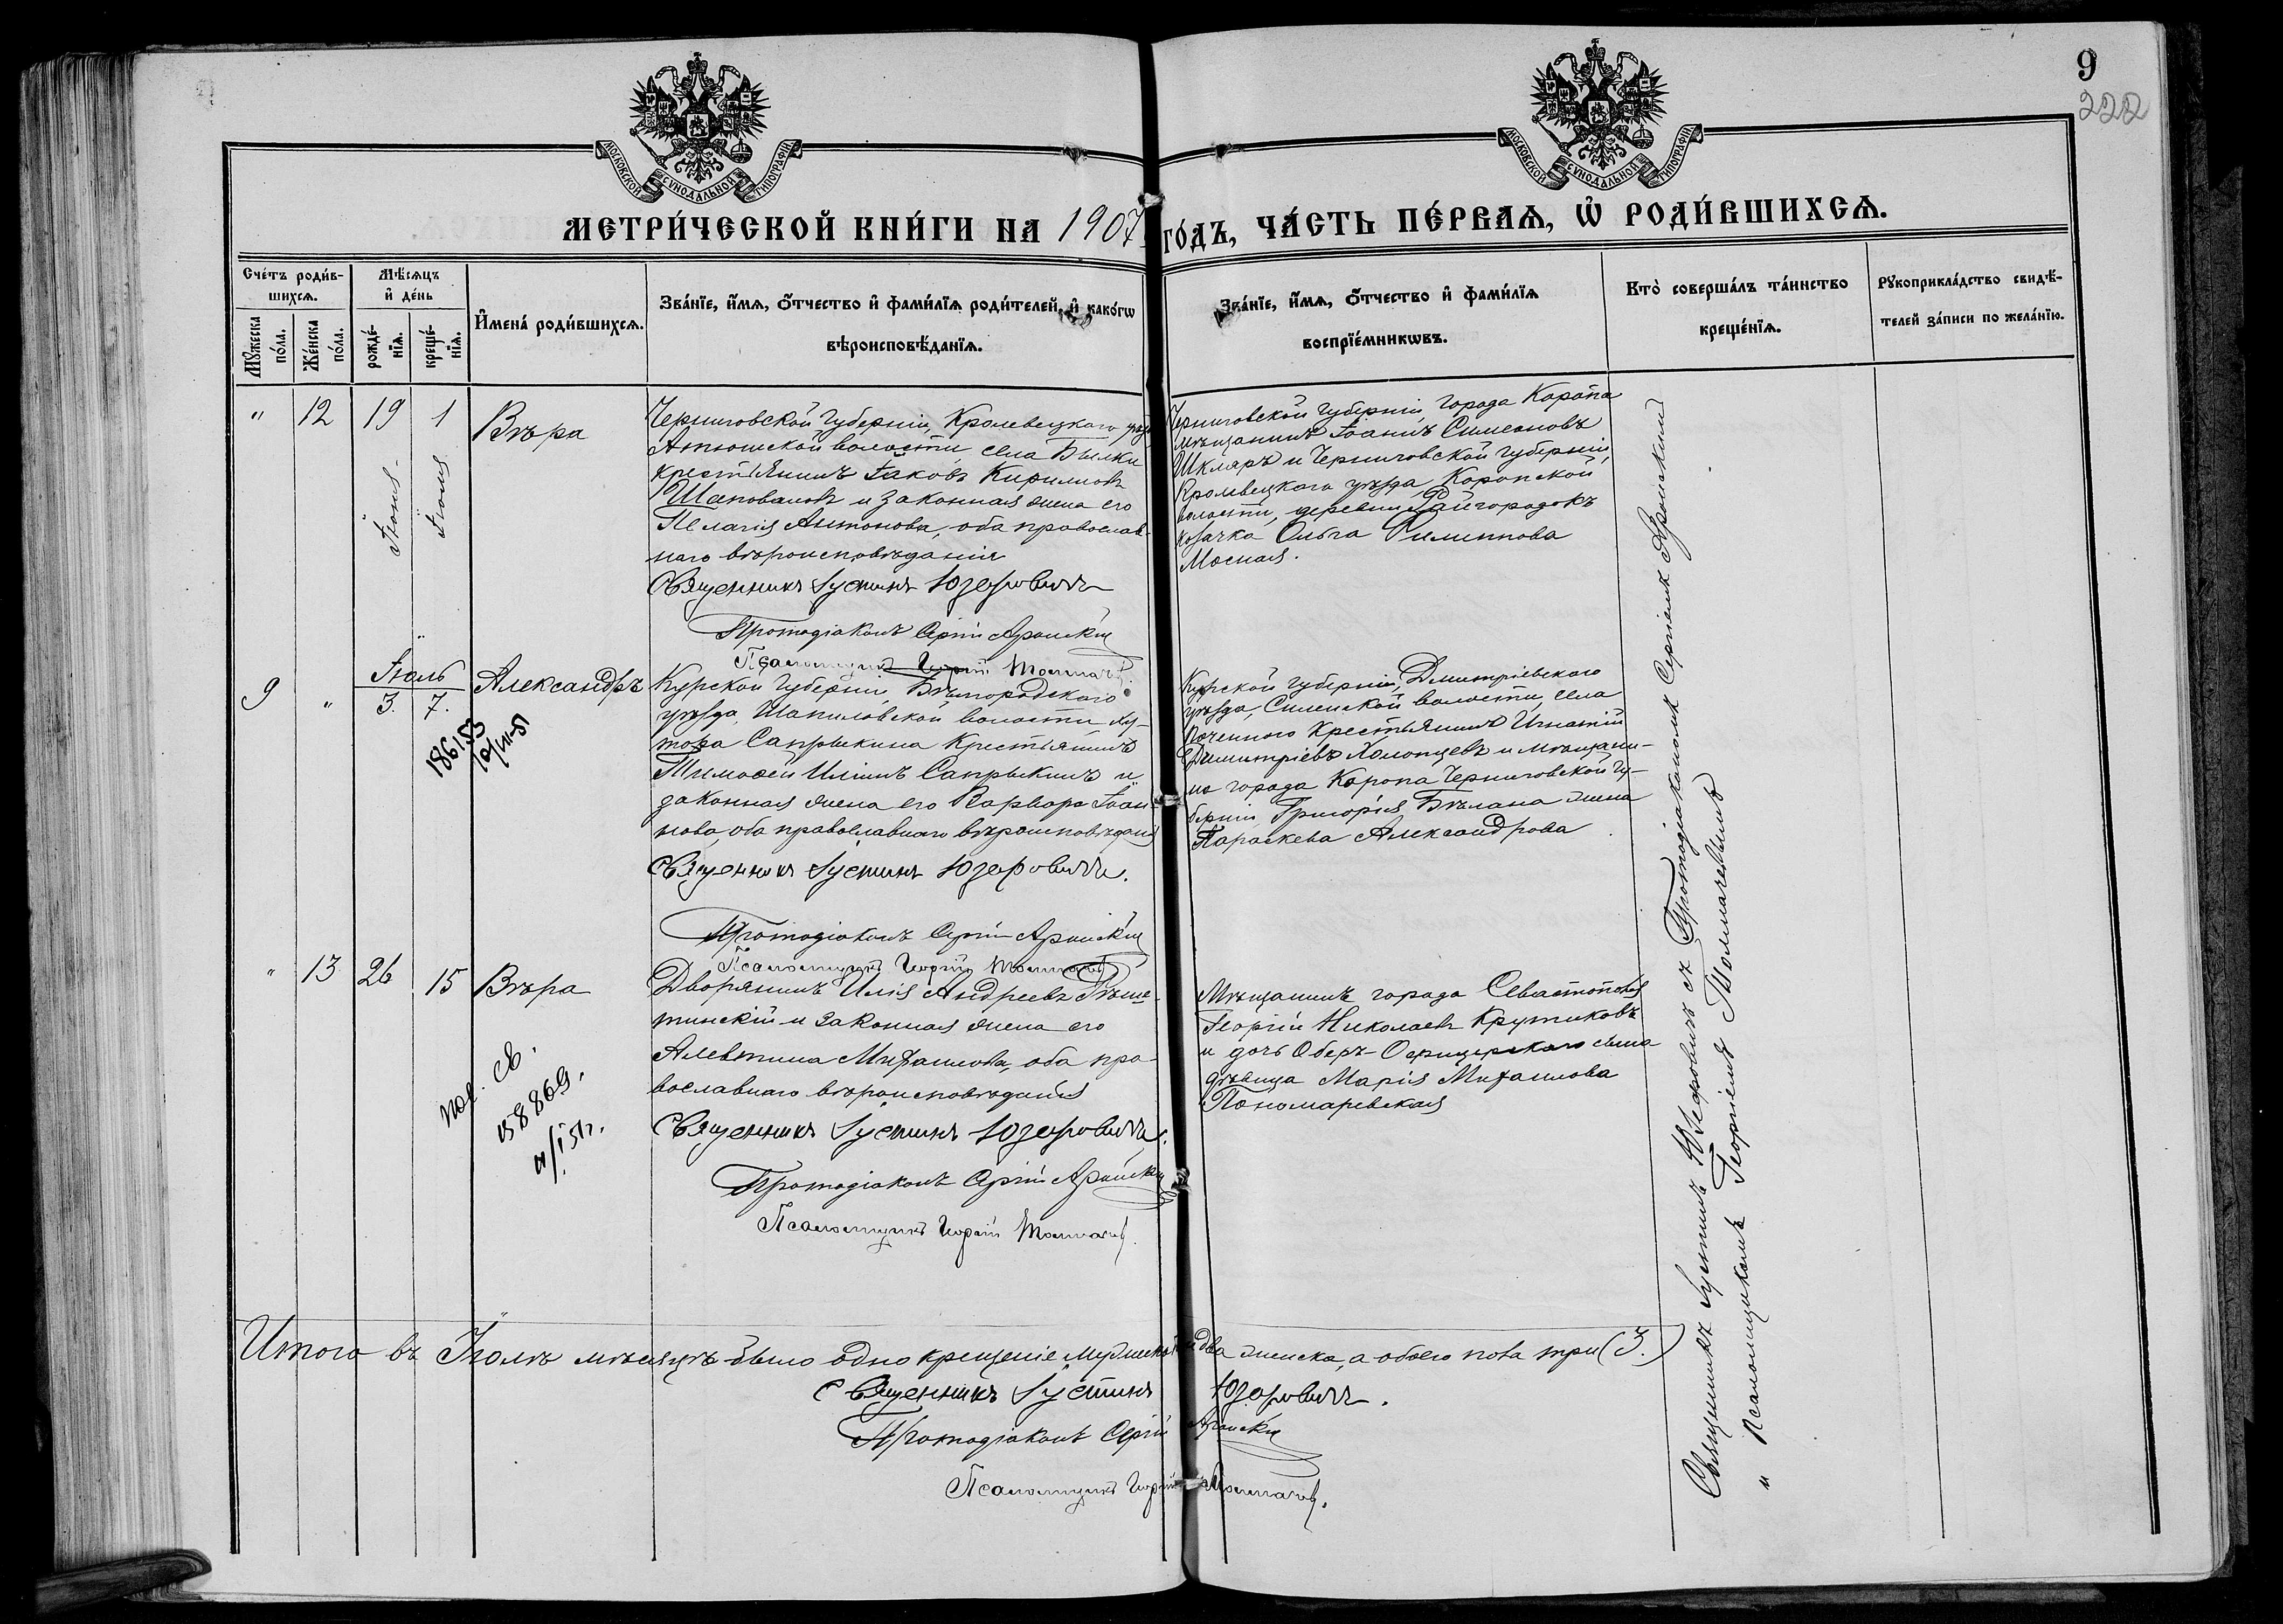 9
222
МОСКОВСКОЙ СѴНОДАЛЬНОЙ ТИПОГРАФІИ
МОСКОВСКОЙ СѴНОДАЛЬНОЙ ТИПОГРАФІИ
МЕТРИ́ЧЕСКОЙ КНИ́ГИ НА 1907 ГО́ДЪ, ЧА́СТЬ ПЕ́РВАѦ, Ѽ РОДИ́ВШИХСѦ.
Сче́тъ роди́в-
шихсѧ.
Мꙋ́жеска по́ла.
Же́нска по́ла.
Мѣ́сѧцъ
и҆ де́нь
рожде́-
нїѧ.
креще́-
нїѧ.
И҆мена̀ роди́вшихсѧ.
Зва́нїе, и҆́мѧ, ѻ҆́тчество и҆ фами́лїѧ роди́телей, и҆ како́гѡ
вѣроисповѣ́данїѧ.
Зва́нїе, и҆́мѧ, ѻ҆́тчество и҆ фами́лїѧ
воспрїе́мникѡвъ.
Кто̀ соверша́лъ та́инство
креще́нїѧ.
Рꙋкоприкла́дство свидѣ́-
телей за́писи по жела́нїю.
" 12 19 1 Вѣра
Іюня
Іюля
Черниговской губерніи, Кролевецкаго уѣз.
Атюшской волости села Былки
крестьянинъ Іаковъ Кирилловъ
Шаповаловъ и законная жена его
Пелагія Антонова, оба православ-
наго вѣроисповѣданія
Священникъ Іустинъ Юзефовичъ
Протодіаконъ Сергій Аронскій
Псаломщикъ Георгій Толмачевъ
Черниговской губерніи, города Коропа
мѣщанинъ Іоаннъ Симеоновъ
Шкляръ и Черниговской губерніи,
Кролевецкаго уѣзда, Коропской
волости, деревни Райгородокъ
козачка Ольга Филиппова
9 " Іюль 3. 7. Александръ
186153
Курской губерніи, Бѣлгородскаго
уѣзда, Шапиловской волости ху-
тора Сапрыкина крестьянинъ
Тимоѳей Иліинъ Сапрыкинъ и
законная жена его Варвара Іоан-
нова, оба православнаго вѣроисповѣданія
Священникъ Іустинъ Юзефовичъ.
Протодіаконъ Сергій Аронскій
Псаломщикъ Георгій Толмачевъ
Курской губерніи, Дмитріевскаго
уѣзда, волости, села
крестьянинъ Игнатій
Димитріевъ Холопцевъ и мѣщани-
на города Коропа Черниговской гу-
берніи Григорія Бѣлана жена
Параскева Александрова
" 13 26 15 Вѣра
58869.
Дворянинъ Илія Андреевъ
и законная жена его
Алевтина Михаилова, оба пра-
вославнаго вѣроисповѣданія
Священникъ Іустинъ Юзефовичъ.
Протодіаконъ Сергій Аронскій
Псаломщикъ Георгій Толмачевъ.
Мѣщанинъ города Севастополя
Георгій Николаевъ Крутиковъ
и дочь Оберъ-Офицерскаго сына
дѣвица Марія Михаилова
Пономаревская
Священникъ Іустинъ Юзефовичъ съ Протодіакономъ Сергіемъ Аронскимъ
и Псаломщикомъ Георгіемъ Толмачевымъ
Итого въ Іюлѣ мѣсяцѣ было одно крещеніе мужеска и два женска, а обоего пола три (3.)
Священникъ Іустинъ Юзефовичъ.
Протодіаконъ Сергій Аронскій
Псаломщикъ Георгій Толмачевъ.